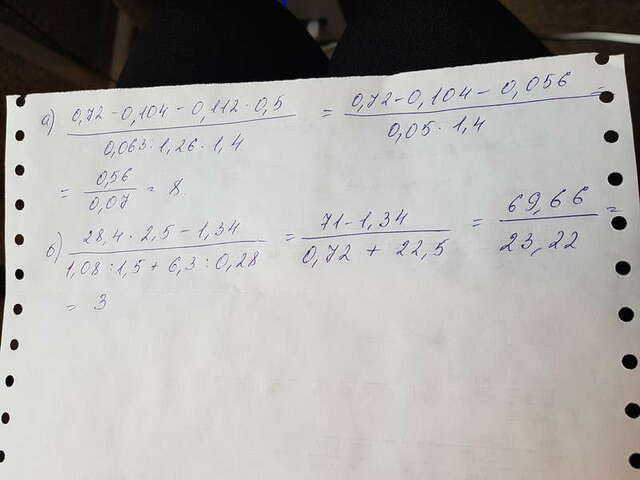 а) 0,72 - 0,104 - 0,112 · 0,5 / 0,063 : 1,26 · 1,4 = 0,72 - 0,104 - 0,056 / 0,05 · 1,4 =
= 0,56 / 0,07 = 8
б) 28,4 · 2,5 - 1,34 / 1,08 : 1,5 + 6,3 : 0,28 = 71 - 1,34 / 0,72 + 22,5 = 69,66 / 23,22 =
= 3